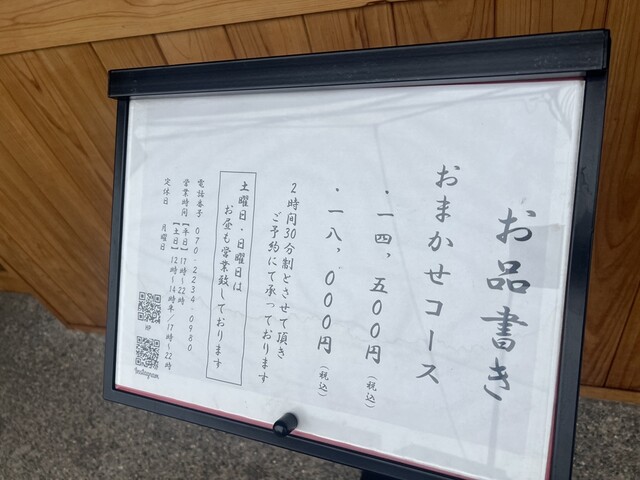 お品書き
おまかせコース
・一四，五００円（税込）
・一八，０００円（税込）
2時間30分制とさせて頂き
ご予約にて承っております
土曜日・日曜日は
お昼も営業致しております
電話番号 070-2234-0980
営業時間【平日】17時〜22時
【土日】12時〜14時半／17時〜22時
定休日 月曜日
HP
Instagram